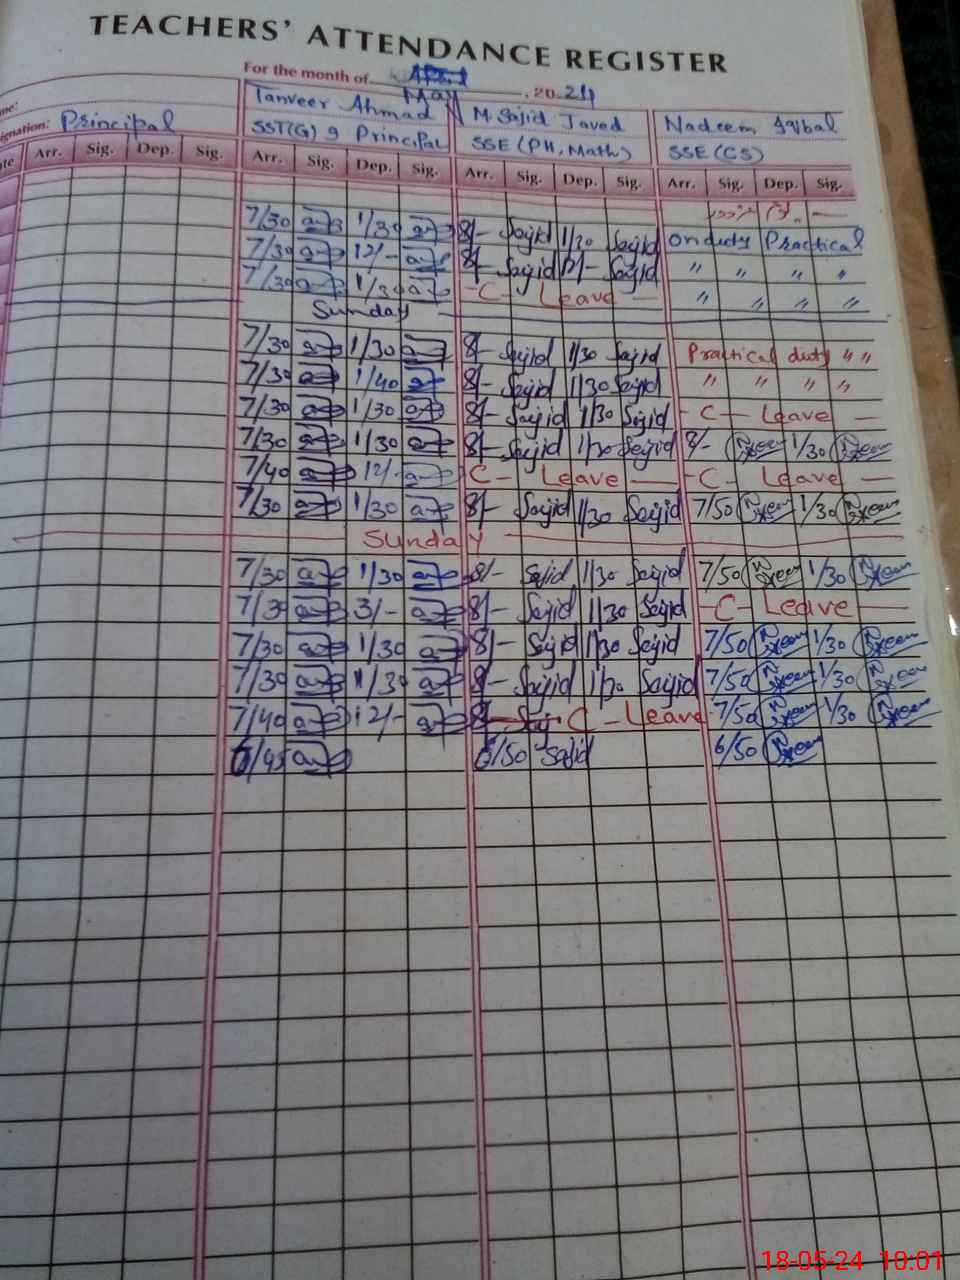 TEACHERS' ATTENDANCE REGISTER
For the month of May, 2024
Tanveer Ahmad M. Sajid Javed Nadeem Iqbal
Principal SST(G) 9 Principal SSE (PH, Math) SSE (CS)
Arr. Sig. Dep. Sig. Arr. Sig. Dep. Sig. Arr. Sig. Dep. Sig. Arr. Sig. Dep. Sig.
7/30 1/30 8/- Sajid 1/30 Sajid on duty Practical
7/30 12/- 8/- Sajid 12/- Sajid " " " "
7/30 1/30 -C- Leave - " " " "
Sunday
7/30 1/30 8/- Sajid 1/30 Sajid Practical duty " "
7/30 1/40 8/- Sajid 1/30 Sajid " " " "
7/30 1/30 8/- Sajid 1/30 Sajid -C- Leave -
7/30 1/30 8/- Sajid 1/30 Sajid 8/- 1/30
7/40 12/- C- Leave - -C- Leave -
7/30 1/30 8/- Sajid 1/30 Sajid 7/50 1/30
Sunday
7/30 1/30 8/- Sajid 1/30 Sajid 7/50 1/30
7/30 3/- 8/- Sajid 1/30 Sajid -C- Leave -
7/30 1/30 8/- Sajid 1/30 Sajid 7/50 1/30
7/30 1/30 8/- Sajid 1/30 Sajid 7/50 1/30
7/40 12/- C - Leave 7/50 1/30
6/45 6/50 Sajid 6/50
18-05-24 10:01